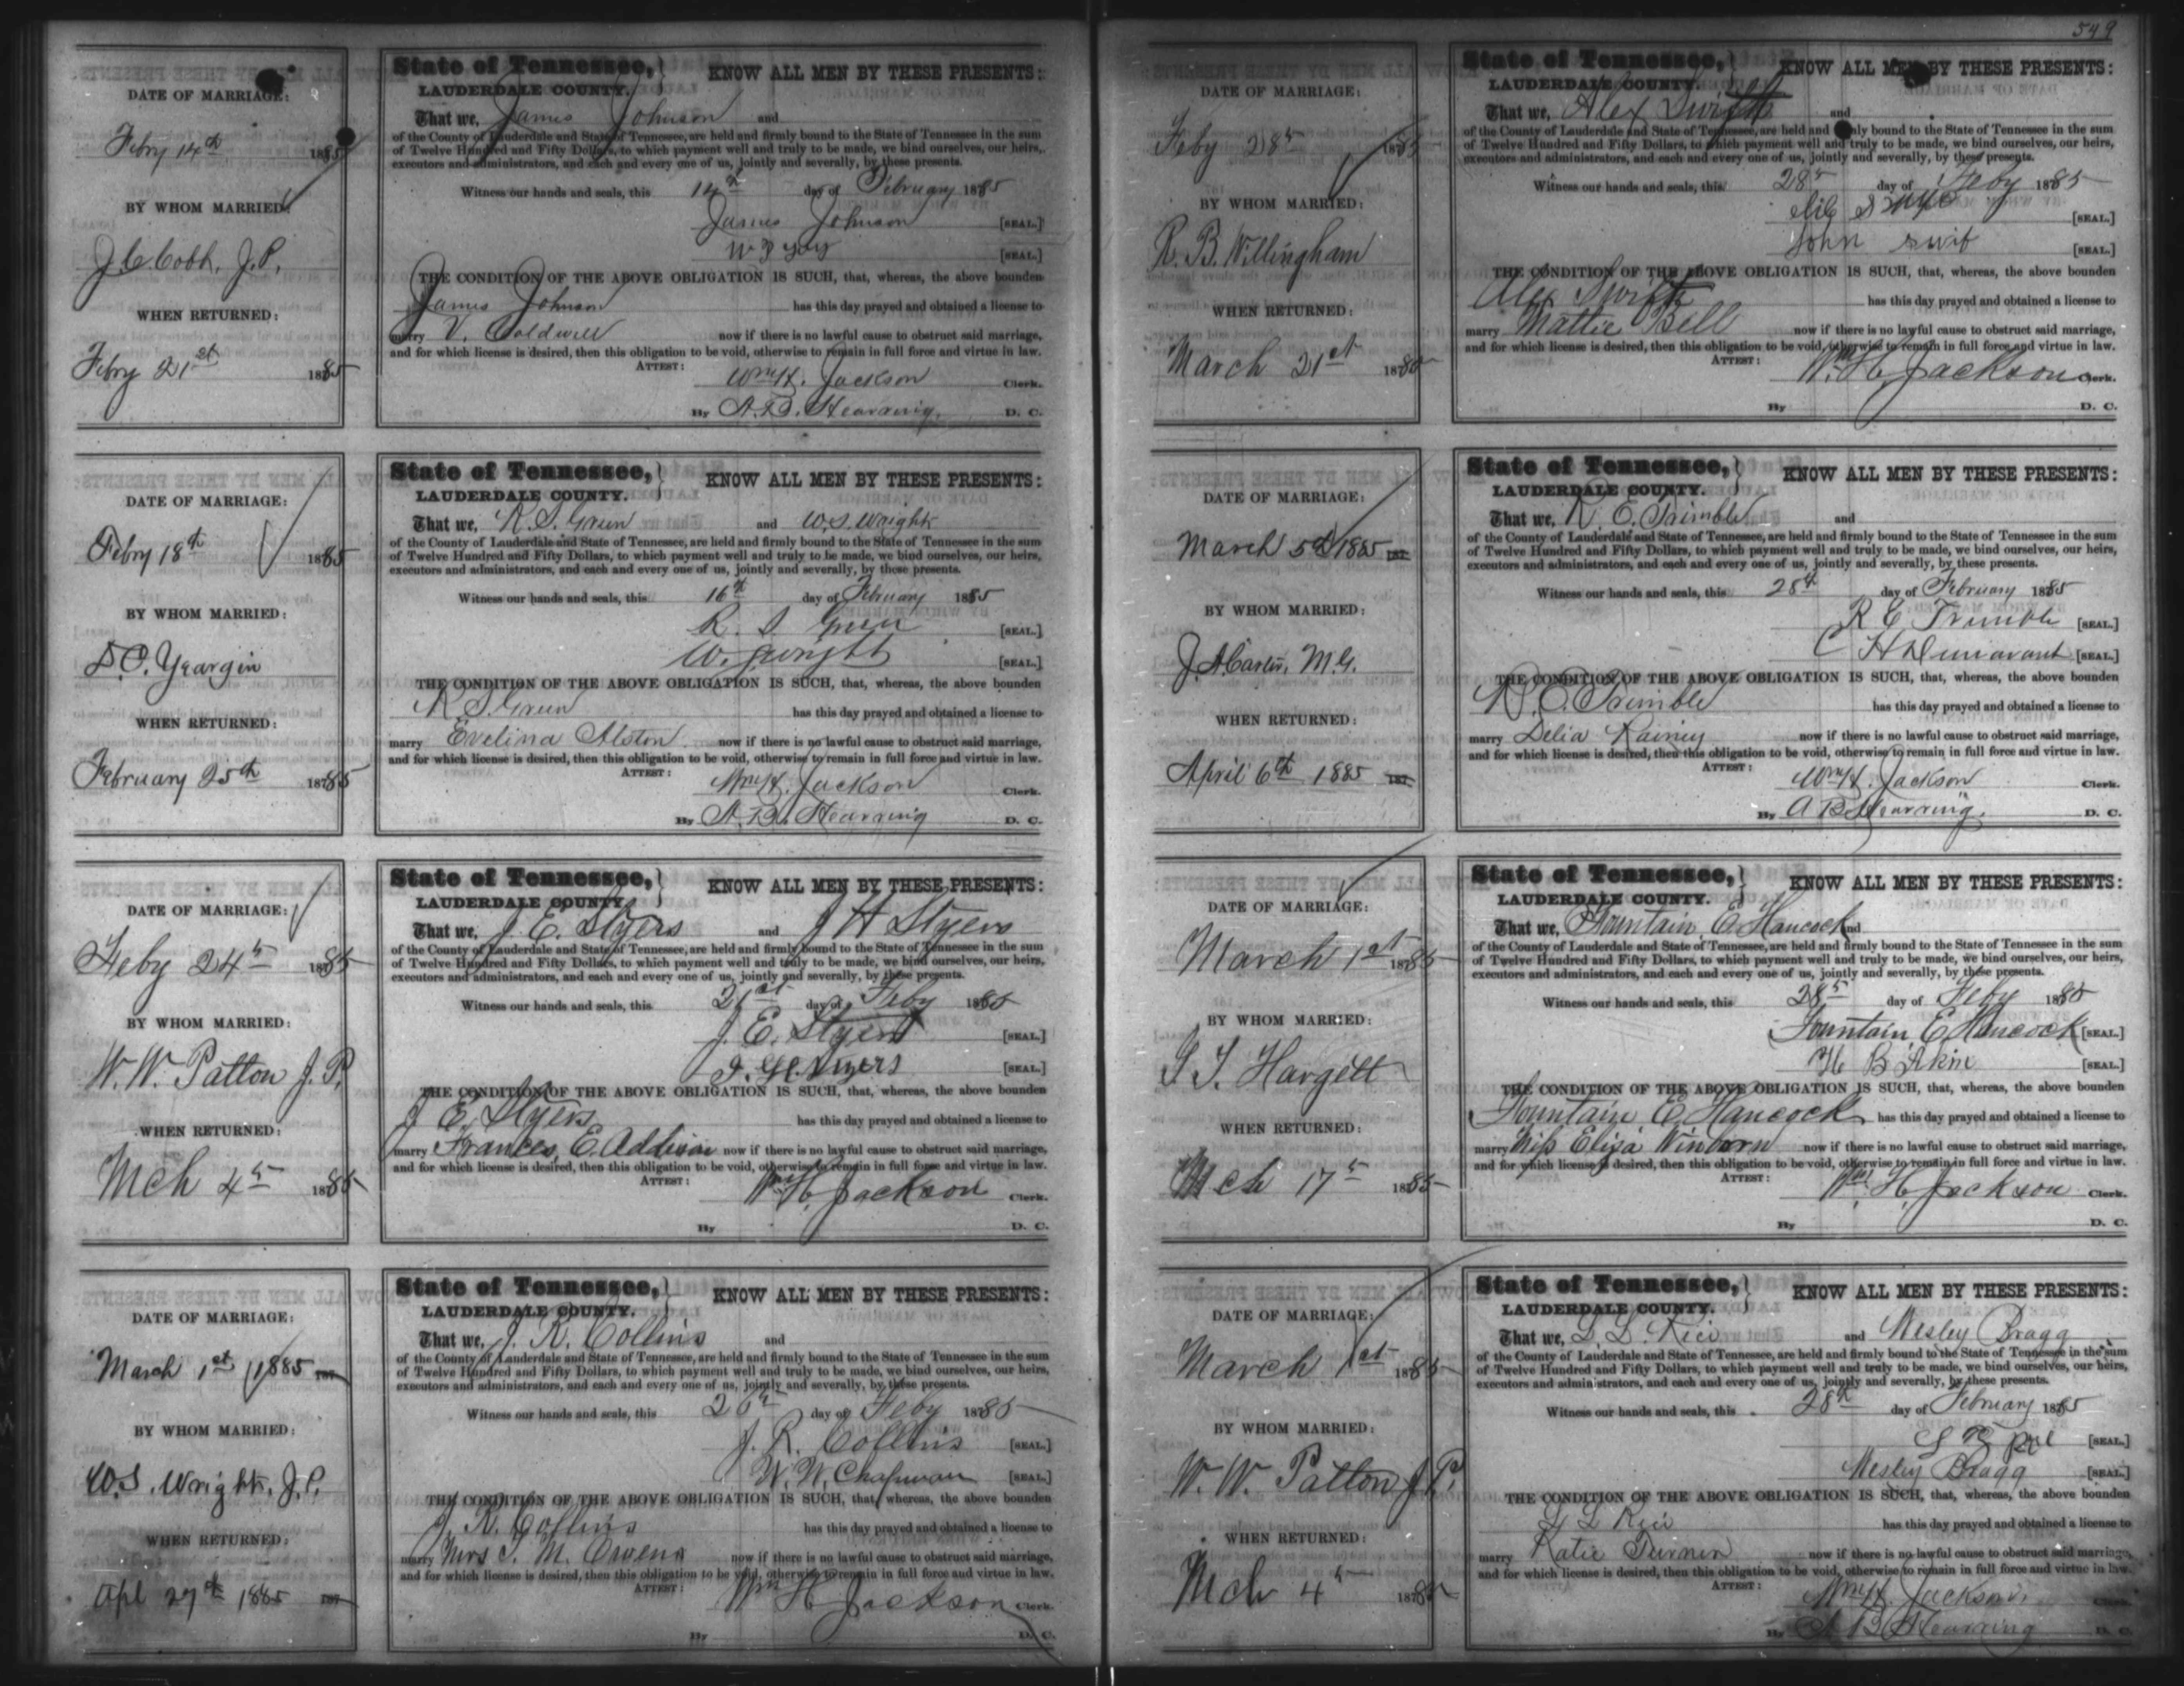 549
DATE OF MARRIAGE:
Febry 14th 1885
BY WHOM MARRIED:
J.C. Cobb, J.P.
WHEN RETURNED:
Febry 21st 1885
State of Tennessee,
LAUDERDALE COUNTY.
KNOW ALL MEN BY THESE PRESENTS:
That we, James Johnson and
of the County of Lauderdale and State of Tennessee, are held and firmly bound to the State of Tennessee in the sum
of Twelve Hundred and Fifty Dollars, to which payment well and truly to be made, we bind ourselves, our heirs,
executors and administrators, and each and every one of us, jointly and severally, by these presents.
Witness our hands and seals, this 14th day of February 1885
James Johnson [SEAL.]
[SEAL.]
THE CONDITION OF THE ABOVE OBLIGATION IS SUCH, that, whereas, the above bounden
James Johnson has this day prayed and obtained a license to
marry V. Coldwell now if there is no lawful cause to obstruct said marriage,
and for which license is desired, then this obligation to be void, otherwise to remain in full force and virtue in law.
ATTEST:
Wm H. Jackson Clerk.
By A.B. Hearring D. C.
DATE OF MARRIAGE:
Febry 18th 1885
BY WHOM MARRIED:
D.C. Yeargin
WHEN RETURNED:
February 25th 1885
State of Tennessee,
LAUDERDALE COUNTY.
KNOW ALL MEN BY THESE PRESENTS:
That we, R.S. Green and W.S. Wright
of the County of Lauderdale and State of Tennessee, are held and firmly bound to the State of Tennessee in the sum
of Twelve Hundred and Fifty Dollars, to which payment well and truly to be made, we bind ourselves, our heirs,
executors and administrators, and each and every one of us, jointly and severally, by these presents.
Witness our hands and seals, this 16th day of February 1885
R. S. Green [SEAL.]
W. S. Wright [SEAL.]
THE CONDITION OF THE ABOVE OBLIGATION IS SUCH, that, whereas, the above bounden
R S. Green has this day prayed and obtained a license to
marry Evelina Alston now if there is no lawful cause to obstruct said marriage,
and for which license is desired, then this obligation to be void, otherwise to remain in full force and virtue in law.
ATTEST:
Wm H. Jackson Clerk.
By A.B. Hearring D. C.
DATE OF MARRIAGE:
Feby 24th 1885
BY WHOM MARRIED:
W. W. Patton J. P.
WHEN RETURNED:
Mch 4th 1885
State of Tennessee,
LAUDERDALE COUNTY.
KNOW ALL MEN BY THESE PRESENTS:
That we, J. E. Styers and J H Styers
of the County of Lauderdale and State of Tennessee, are held and firmly bound to the State of Tennessee in the sum
of Twelve Hundred and Fifty Dollars, to which payment well and truly to be made, we bind ourselves, our heirs,
executors and administrators, and each and every one of us, jointly and severally, by these presents.
Witness our hands and seals, this 21st day of Feby 1885
J. E. Styers [SEAL.]
J. H. Styers [SEAL.]
THE CONDITION OF THE ABOVE OBLIGATION IS SUCH, that, whereas, the above bounden
J E. Styers has this day prayed and obtained a license to
marry Frances E. Addison now if there is no lawful cause to obstruct said marriage,
and for which license is desired, then this obligation to be void, otherwise to remain in full force and virtue in law.
ATTEST:
Wm H. Jackson Clerk.
By D. C.
DATE OF MARRIAGE:
March 1st 1885 187
BY WHOM MARRIED:
W.S. Wright, J.P.
WHEN RETURNED:
Apl 27th 1885 187
State of Tennessee,
LAUDERDALE COUNTY.
KNOW ALL MEN BY THESE PRESENTS:
That we, J. R. Collins and
of the County of Lauderdale and State of Tennessee, are held and firmly bound to the State of Tennessee in the sum
of Twelve Hundred and Fifty Dollars, to which payment well and truly to be made, we bind ourselves, our heirs,
executors and administrators, and each and every one of us, jointly and severally, by these presents.
Witness our hands and seals, this 26th day of Feby 1885
J. R. Collins [SEAL.]
W. W. Chapman [SEAL.]
THE CONDITION OF THE ABOVE OBLIGATION IS SUCH, that, whereas, the above bounden
J. R. Collins has this day prayed and obtained a license to
marry Mrs S. M. Owens now if there is no lawful cause to obstruct said marriage,
and for which license is desired, then this obligation to be void, otherwise to remain in full force and virtue in law.
ATTEST:
Wm H Jackson Clerk.
By D. C.
DATE OF MARRIAGE:
Feby 28th 1885
BY WHOM MARRIED:
R. B. Willingham
WHEN RETURNED:
March 21st 1885
State of Tennessee,
LAUDERDALE COUNTY.
KNOW ALL MEN BY THESE PRESENTS:
That we, Alex Swift and
of the County of Lauderdale and State of Tennessee, are held and firmly bound to the State of Tennessee in the sum
of Twelve Hundred and Fifty Dollars, to which payment well and truly to be made, we bind ourselves, our heirs,
executors and administrators, and each and every one of us, jointly and severally, by these presents.
Witness our hands and seals, this 28th day of Feby 1885
[SEAL.]
John Swif [SEAL.]
THE CONDITION OF THE ABOVE OBLIGATION IS SUCH, that, whereas, the above bounden
Alex Swift has this day prayed and obtained a license to
marry Mattie Bell now if there is no lawful cause to obstruct said marriage,
and for which license is desired, then this obligation to be void, otherwise to remain in full force and virtue in law.
ATTEST:
Wm H. Jackson Clerk.
By D. C.
DATE OF MARRIAGE:
March 5th 1885 187
BY WHOM MARRIED:
J. A. Carter, M.G.
WHEN RETURNED:
April 6th 1885 187
State of Tennessee,
LAUDERDALE COUNTY.
KNOW ALL MEN BY THESE PRESENTS:
That we, R. E. Trimble and
of the County of Lauderdale and State of Tennessee, are held and firmly bound to the State of Tennessee in the sum
of Twelve Hundred and Fifty Dollars, to which payment well and truly to be made, we bind ourselves, our heirs,
executors and administrators, and each and every one of us, jointly and severally, by these presents.
Witness our hands and seals, this 28th day of February 1885
R E Trimble [SEAL.]
C H Dunavant [SEAL.]
THE CONDITION OF THE ABOVE OBLIGATION IS SUCH, that, whereas, the above bounden
R. E. Trimble has this day prayed and obtained a license to
marry Delia Rainey now if there is no lawful cause to obstruct said marriage,
and for which license is desired, then this obligation to be void, otherwise to remain in full force and virtue in law.
ATTEST:
Wm H. Jackson Clerk.
By A B Hearring. D. C.
DATE OF MARRIAGE:
March 1st 1885
BY WHOM MARRIED:
S. T. Hargett
WHEN RETURNED:
Mch 17th 1885
State of Tennessee,
LAUDERDALE COUNTY.
KNOW ALL MEN BY THESE PRESENTS:
That we, Fountain E. Hancock and
of the County of Lauderdale and State of Tennessee, are held and firmly bound to the State of Tennessee in the sum
of Twelve Hundred and Fifty Dollars, to which payment well and truly to be made, we bind ourselves, our heirs,
executors and administrators, and each and every one of us, jointly and severally, by these presents.
Witness our hands and seals, this 28th day of Feby 1885
Fountain E Hancock [SEAL.]
H B Akin [SEAL.]
THE CONDITION OF THE ABOVE OBLIGATION IS SUCH, that, whereas, the above bounden
Fountain E. Hancock has this day prayed and obtained a license to
marry Miss Eliza Winborn now if there is no lawful cause to obstruct said marriage,
and for which license is desired, then this obligation to be void, otherwise to remain in full force and virtue in law.
ATTEST:
Wm. H. Jackson Clerk.
By D. C.
DATE OF MARRIAGE:
March 1st 1885
BY WHOM MARRIED:
W. W. Patton J. P.
WHEN RETURNED:
Mch 4th 1885
State of Tennessee,
LAUDERDALE COUNTY.
KNOW ALL MEN BY THESE PRESENTS:
That we, L. L. Rice and Wesley Bragg
of the County of Lauderdale and State of Tennessee, are held and firmly bound to the State of Tennessee in the sum
of Twelve Hundred and Fifty Dollars, to which payment well and truly to be made, we bind ourselves, our heirs,
executors and administrators, and each and every one of us, jointly and severally, by these presents.
Witness our hands and seals, this 28th day of February 1885
[SEAL.]
Wesley Bragg [SEAL.]
THE CONDITION OF THE ABOVE OBLIGATION IS SUCH, that, whereas, the above bounden
L L Rice has this day prayed and obtained a license to
marry Katie Turner now if there is no lawful cause to obstruct said marriage,
and for which license is desired, then this obligation to be void, otherwise to remain in full force and virtue in law.
ATTEST:
Wm H. Jackson Clerk.
By A B Hearring D. C.